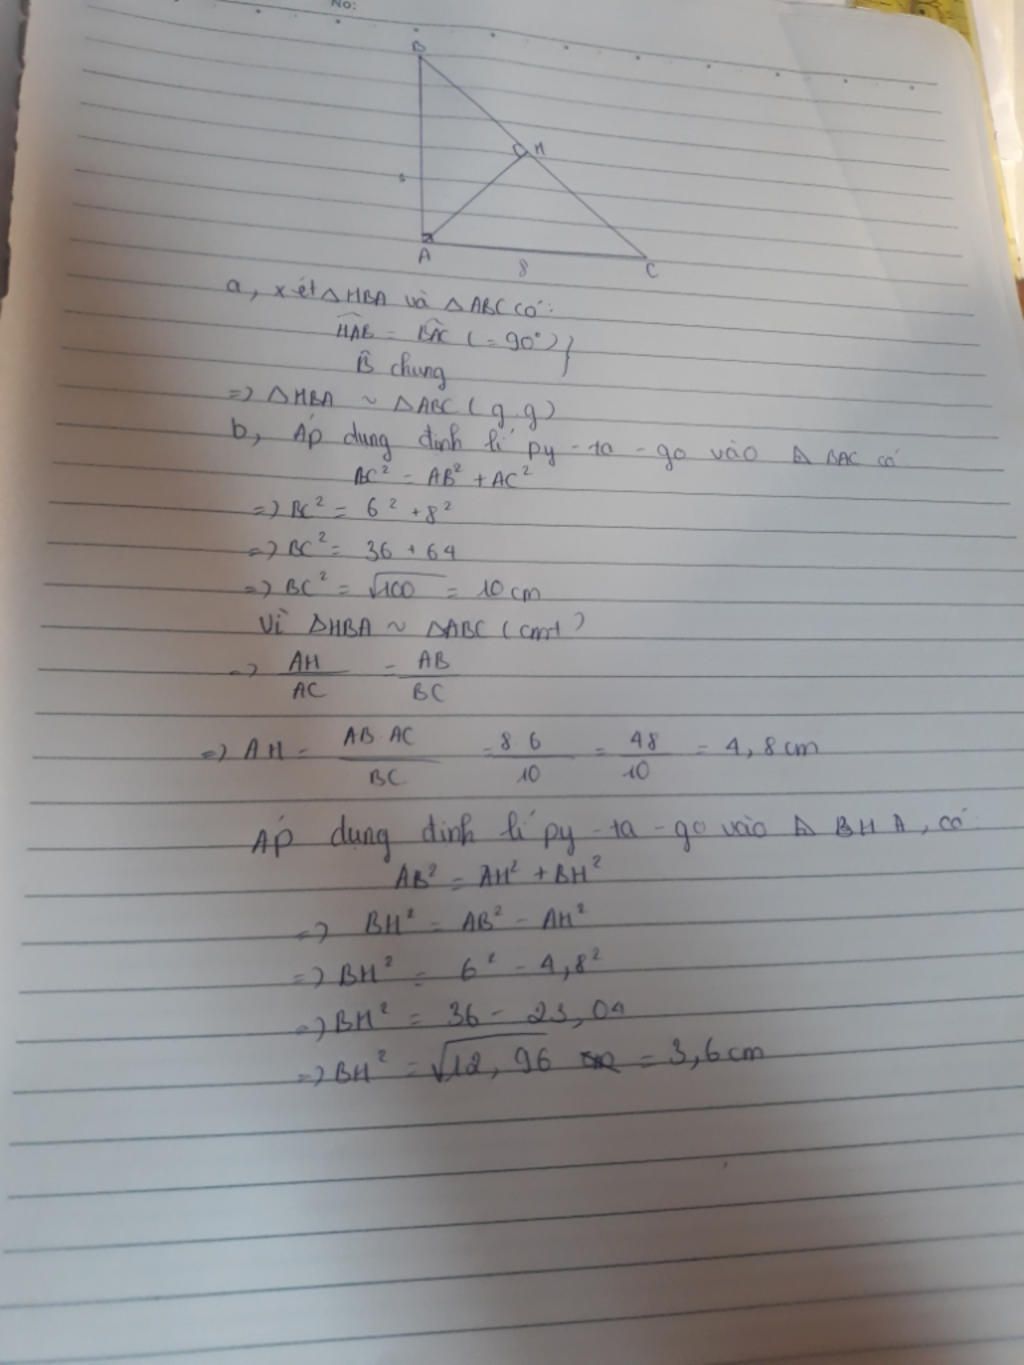 No:
B
H
A
8
C
a, xét △HBA và △ABC có:
HAB = BAC (= 90°) }
B̂ chung
=> △HBA ~ △ABC (g.g)
b, Áp dung định lí py-ta-go vào △ BAC có
BC² = AB² + AC²
=> BC² = 6² + 8²
=> BC² = 36 + 64
=> BC² = √100 = 10 cm
Vì △HBA ~ △ABC (cmt)
=> AH/AC = AB/BC
=> AH = AB.AC/BC = 8 6/10 = 48/10 = 4,8 cm
Áp dung định lí py-ta-go vào △ BHA, có
AB² = AH² + BH²
=> BH² = AB² - AH²
=> BH² = 6² - 4,8²
=> BH² = 36 - 23,04
=> BH² = √12,96 = 3,6 cm